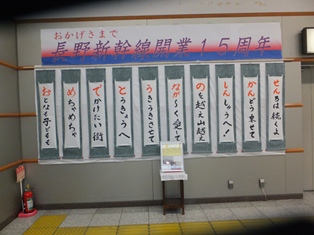 おかげさまで
長野新幹線開業15周年
おとなも子どもも
めちゃめちゃ
でかけたい街
とうきょうへ
うきうきさせて
なが〜く愛して
のを越え山越え
しんしゅうへ!
かんどう乗せて
せんろは続くよ